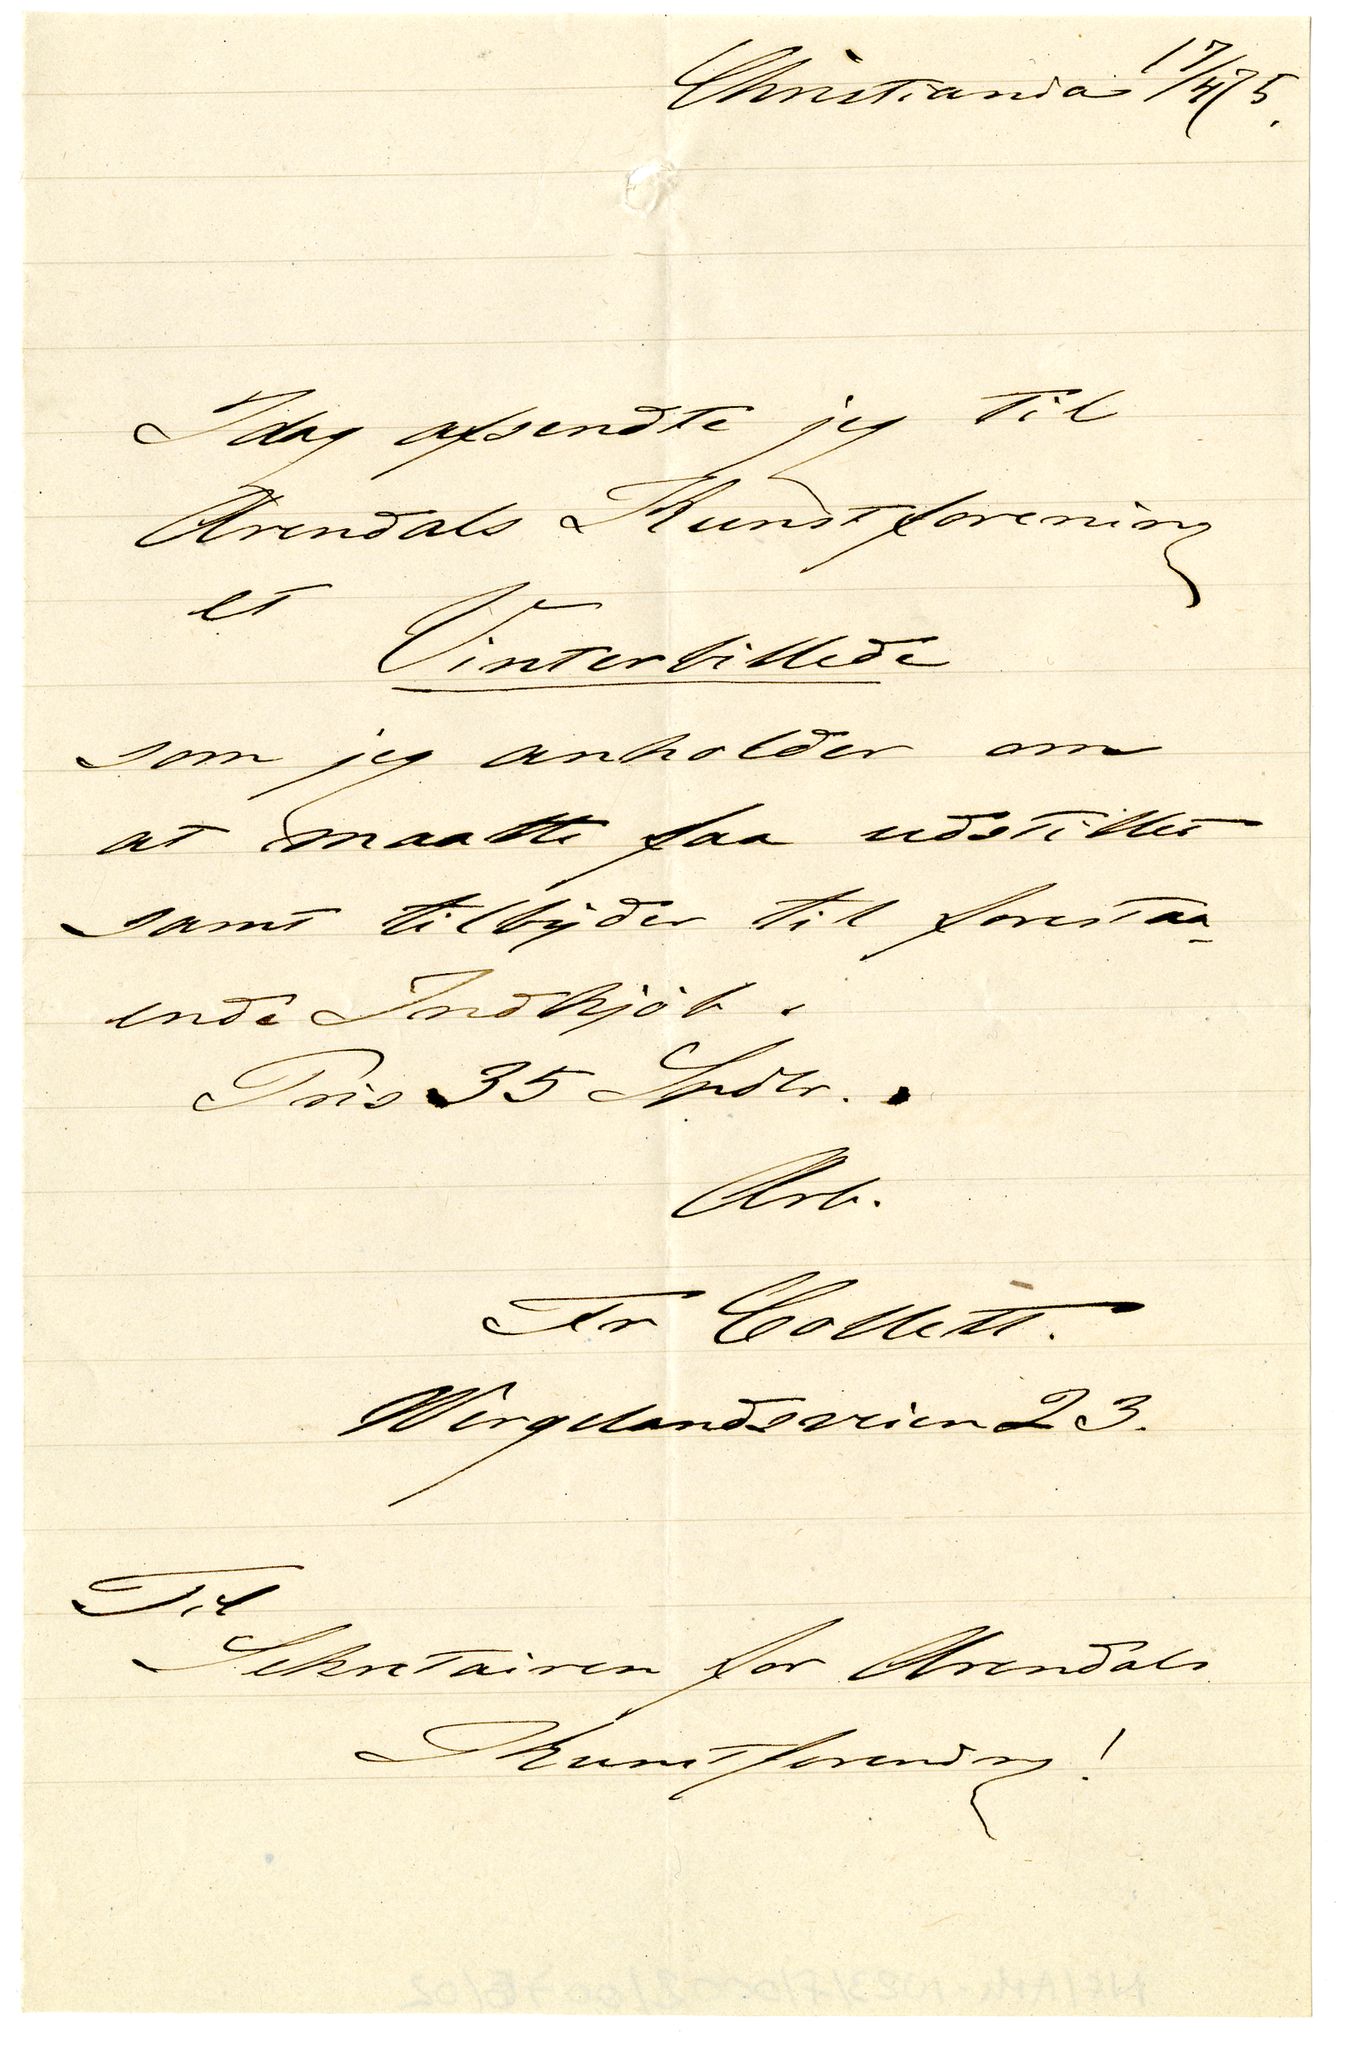 Christiania 17/4 75.
Idag afsendte jeg til
Arendals Kunstforening
et
Vinterbillede
som jeg anholder om
at maatte faa udstillet
samt tilbyder til forestaa-
ende Indkjøb.
Pris 35 Spdlr.
Arb.
Fr Collett.
Wergelandsveien 23.
Til
Sekretairen for Arendals
Kunstforening!